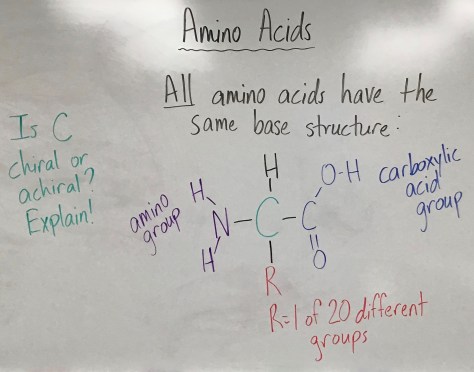 Amino Acids
All amino acids have the
same base structure:
Is C
chiral or
achiral?
Explain!
amino
group
H
H
N-C-C
H
O-H
O
R
carboxylic
acid
group
R=1 of 20 different
groups